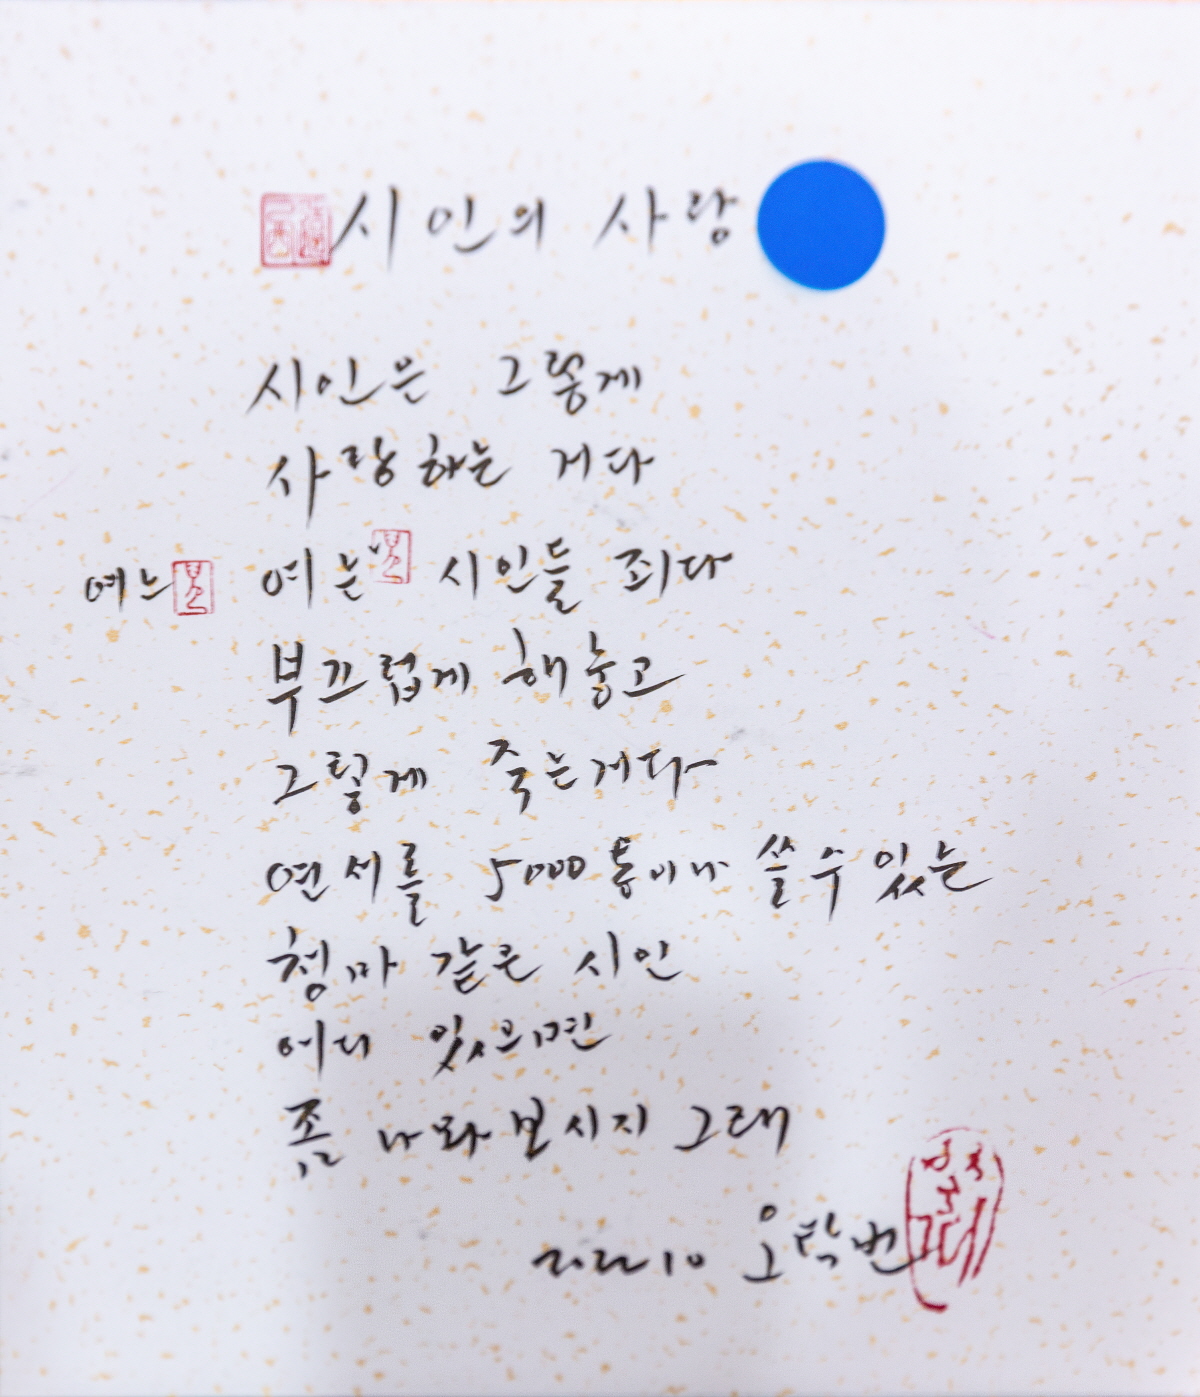 시인의 사랑
시인은 그렇게
사랑하는 거다
여느 여는 시인들 죄다
부끄럽게 해놓고
그렇게 죽는거다
연서를 5000통이나 쓸 수 있는
청마 같은 시인
어디 있으면
좀 나와보시지 그래
2022 10 오탁번